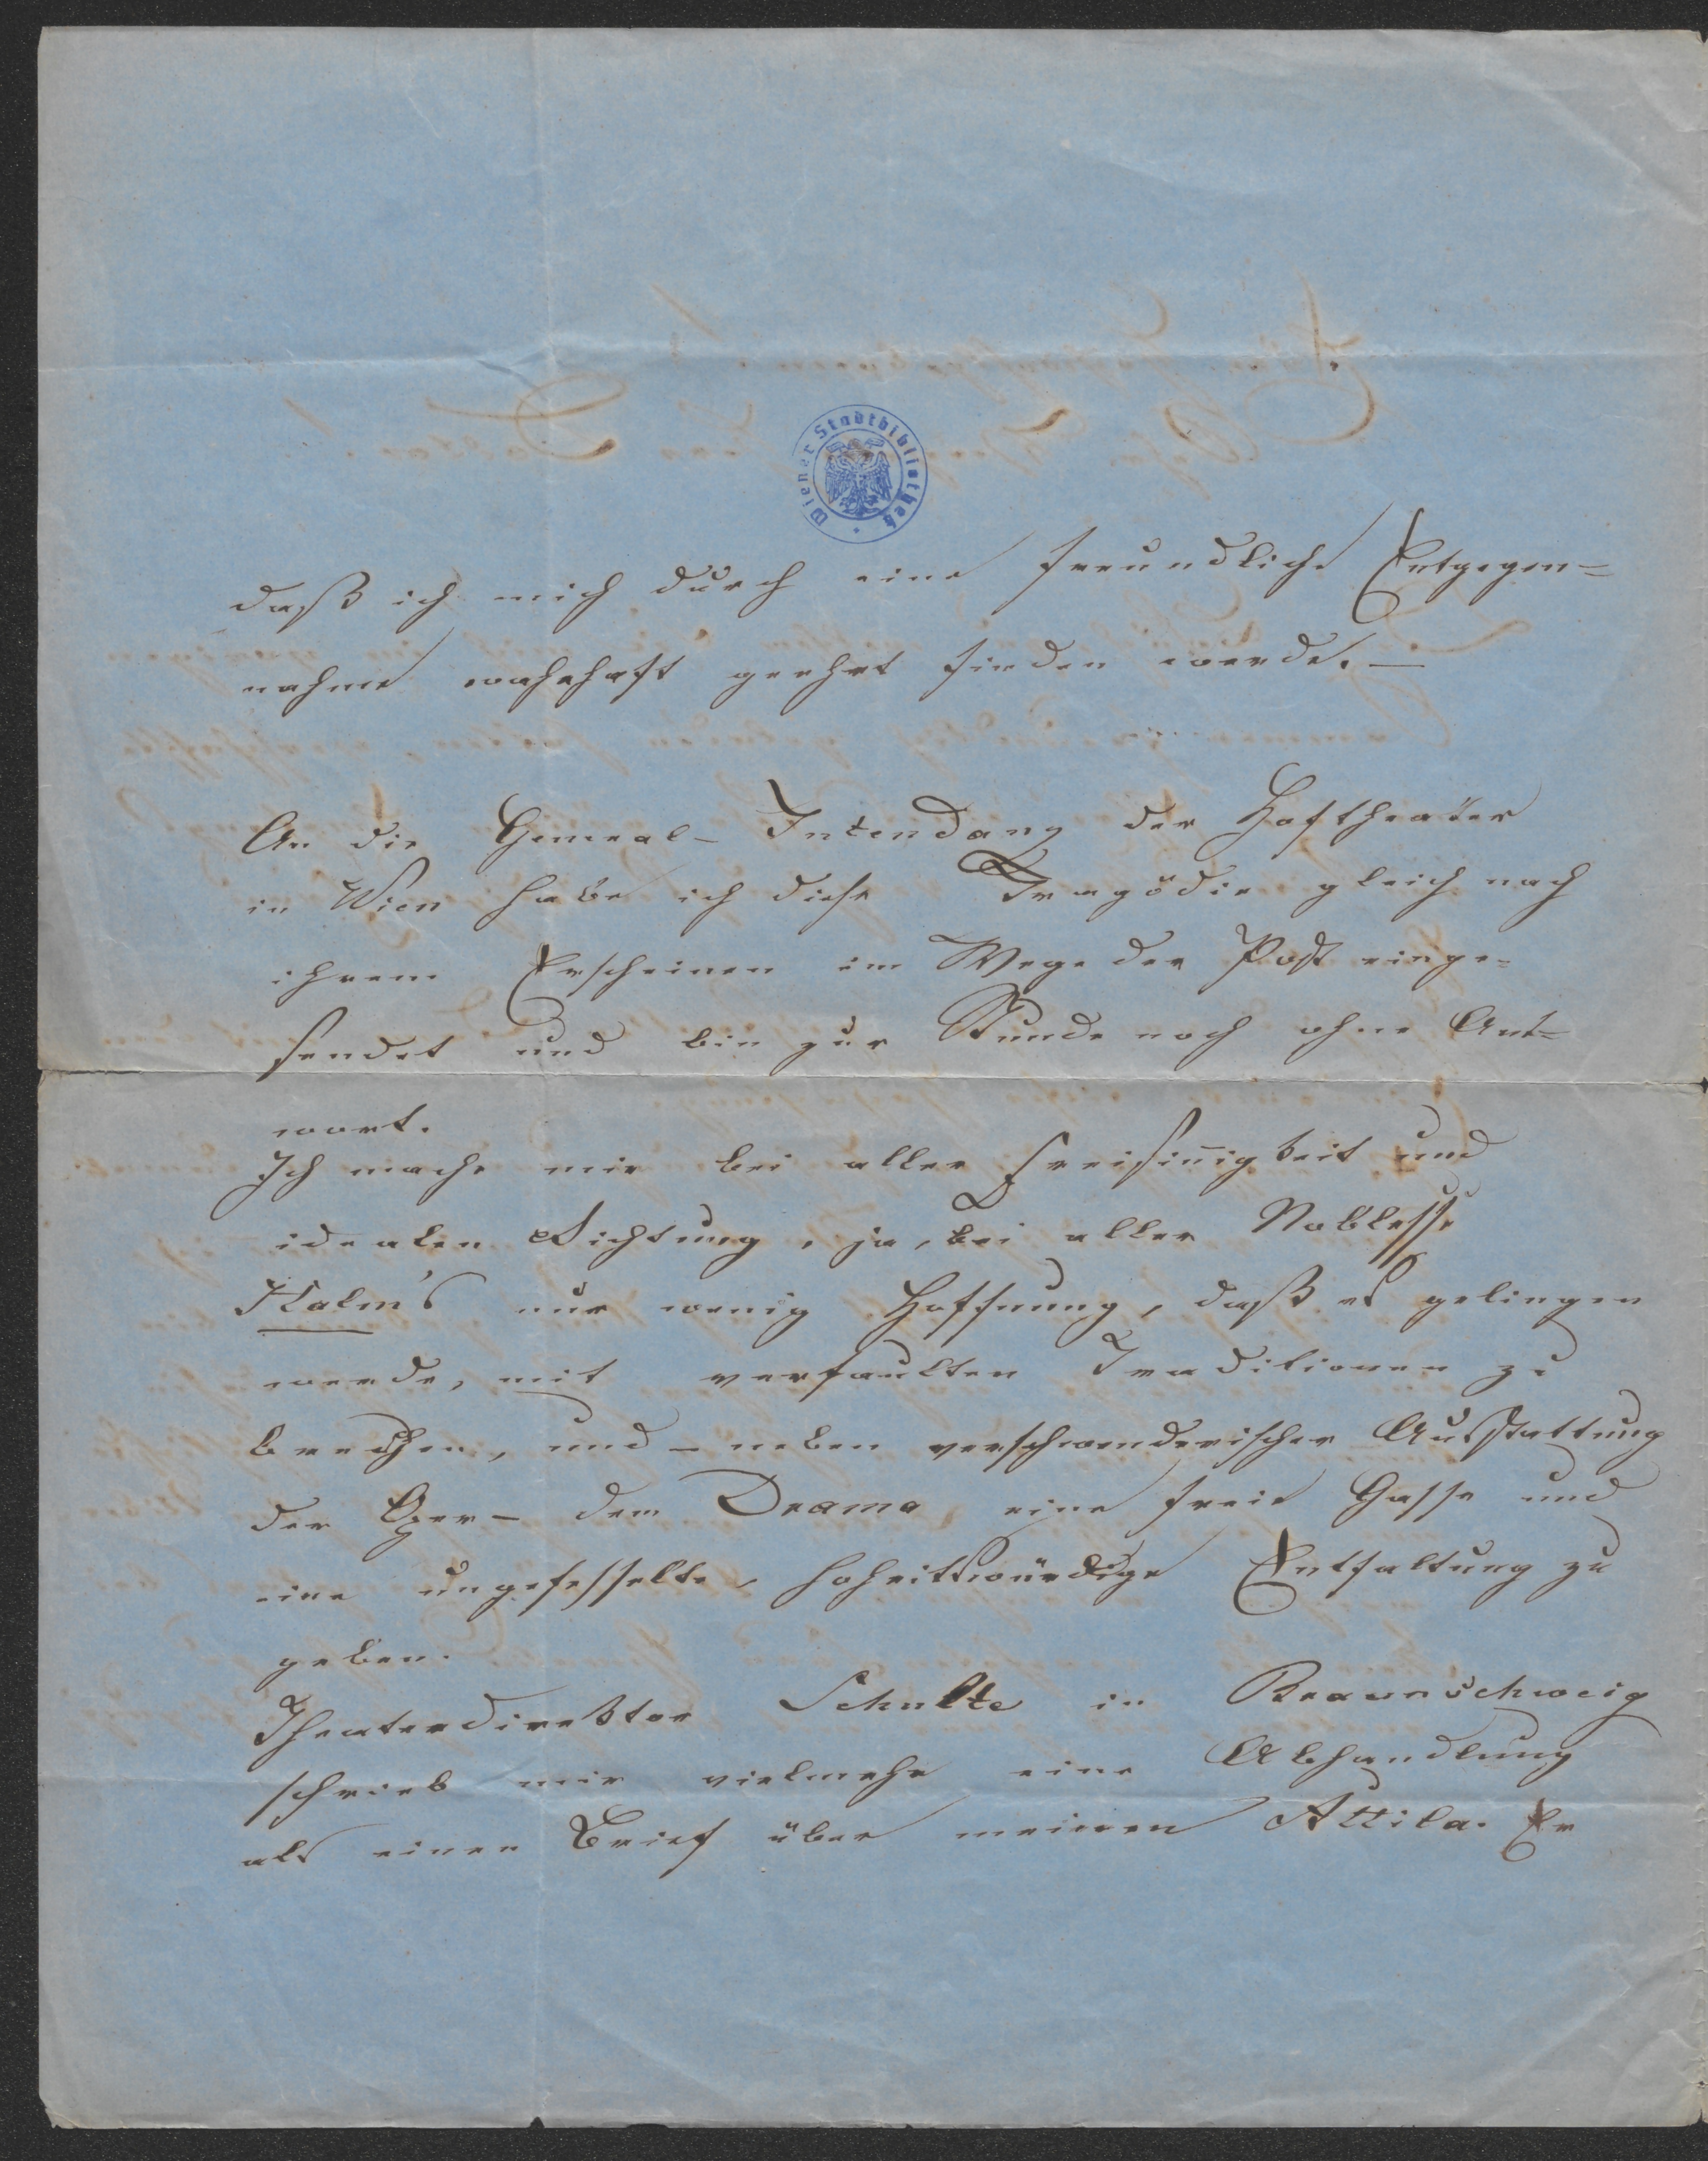 Wiener Stadtbibliothek
daß ich mich durch eine freundliche Entgegen=
nahme wahrhaft geehrt finden werde. —
An die General-Intendanz der Hoftheater
in Wien habe ich diese Tragödie gleich nach
ihrem Erscheinen im Wege der Post einge=
sendet und bin zur Stunde noch ohne Ant=
wort.
Ich mache mir bei aller Freisinnigkeit und
idealen Richtung, ja, bei aller Noblesse
Halm's nur wenig Hoffnung, daß es gelingen
werde, mit verfaulten Traditionen zu
brechen, und – neben verschwenderischer Ausstattung
der Oper – dem Drama eine freie Gasse und
eine ungefesselte, hoheitswürdige Entfaltung zu
geben.
Theaterdirektor Schulte in Braunschweig
schrieb mir vielmehr eine Abhandlung
als einen Brief über meinen Attila. Er